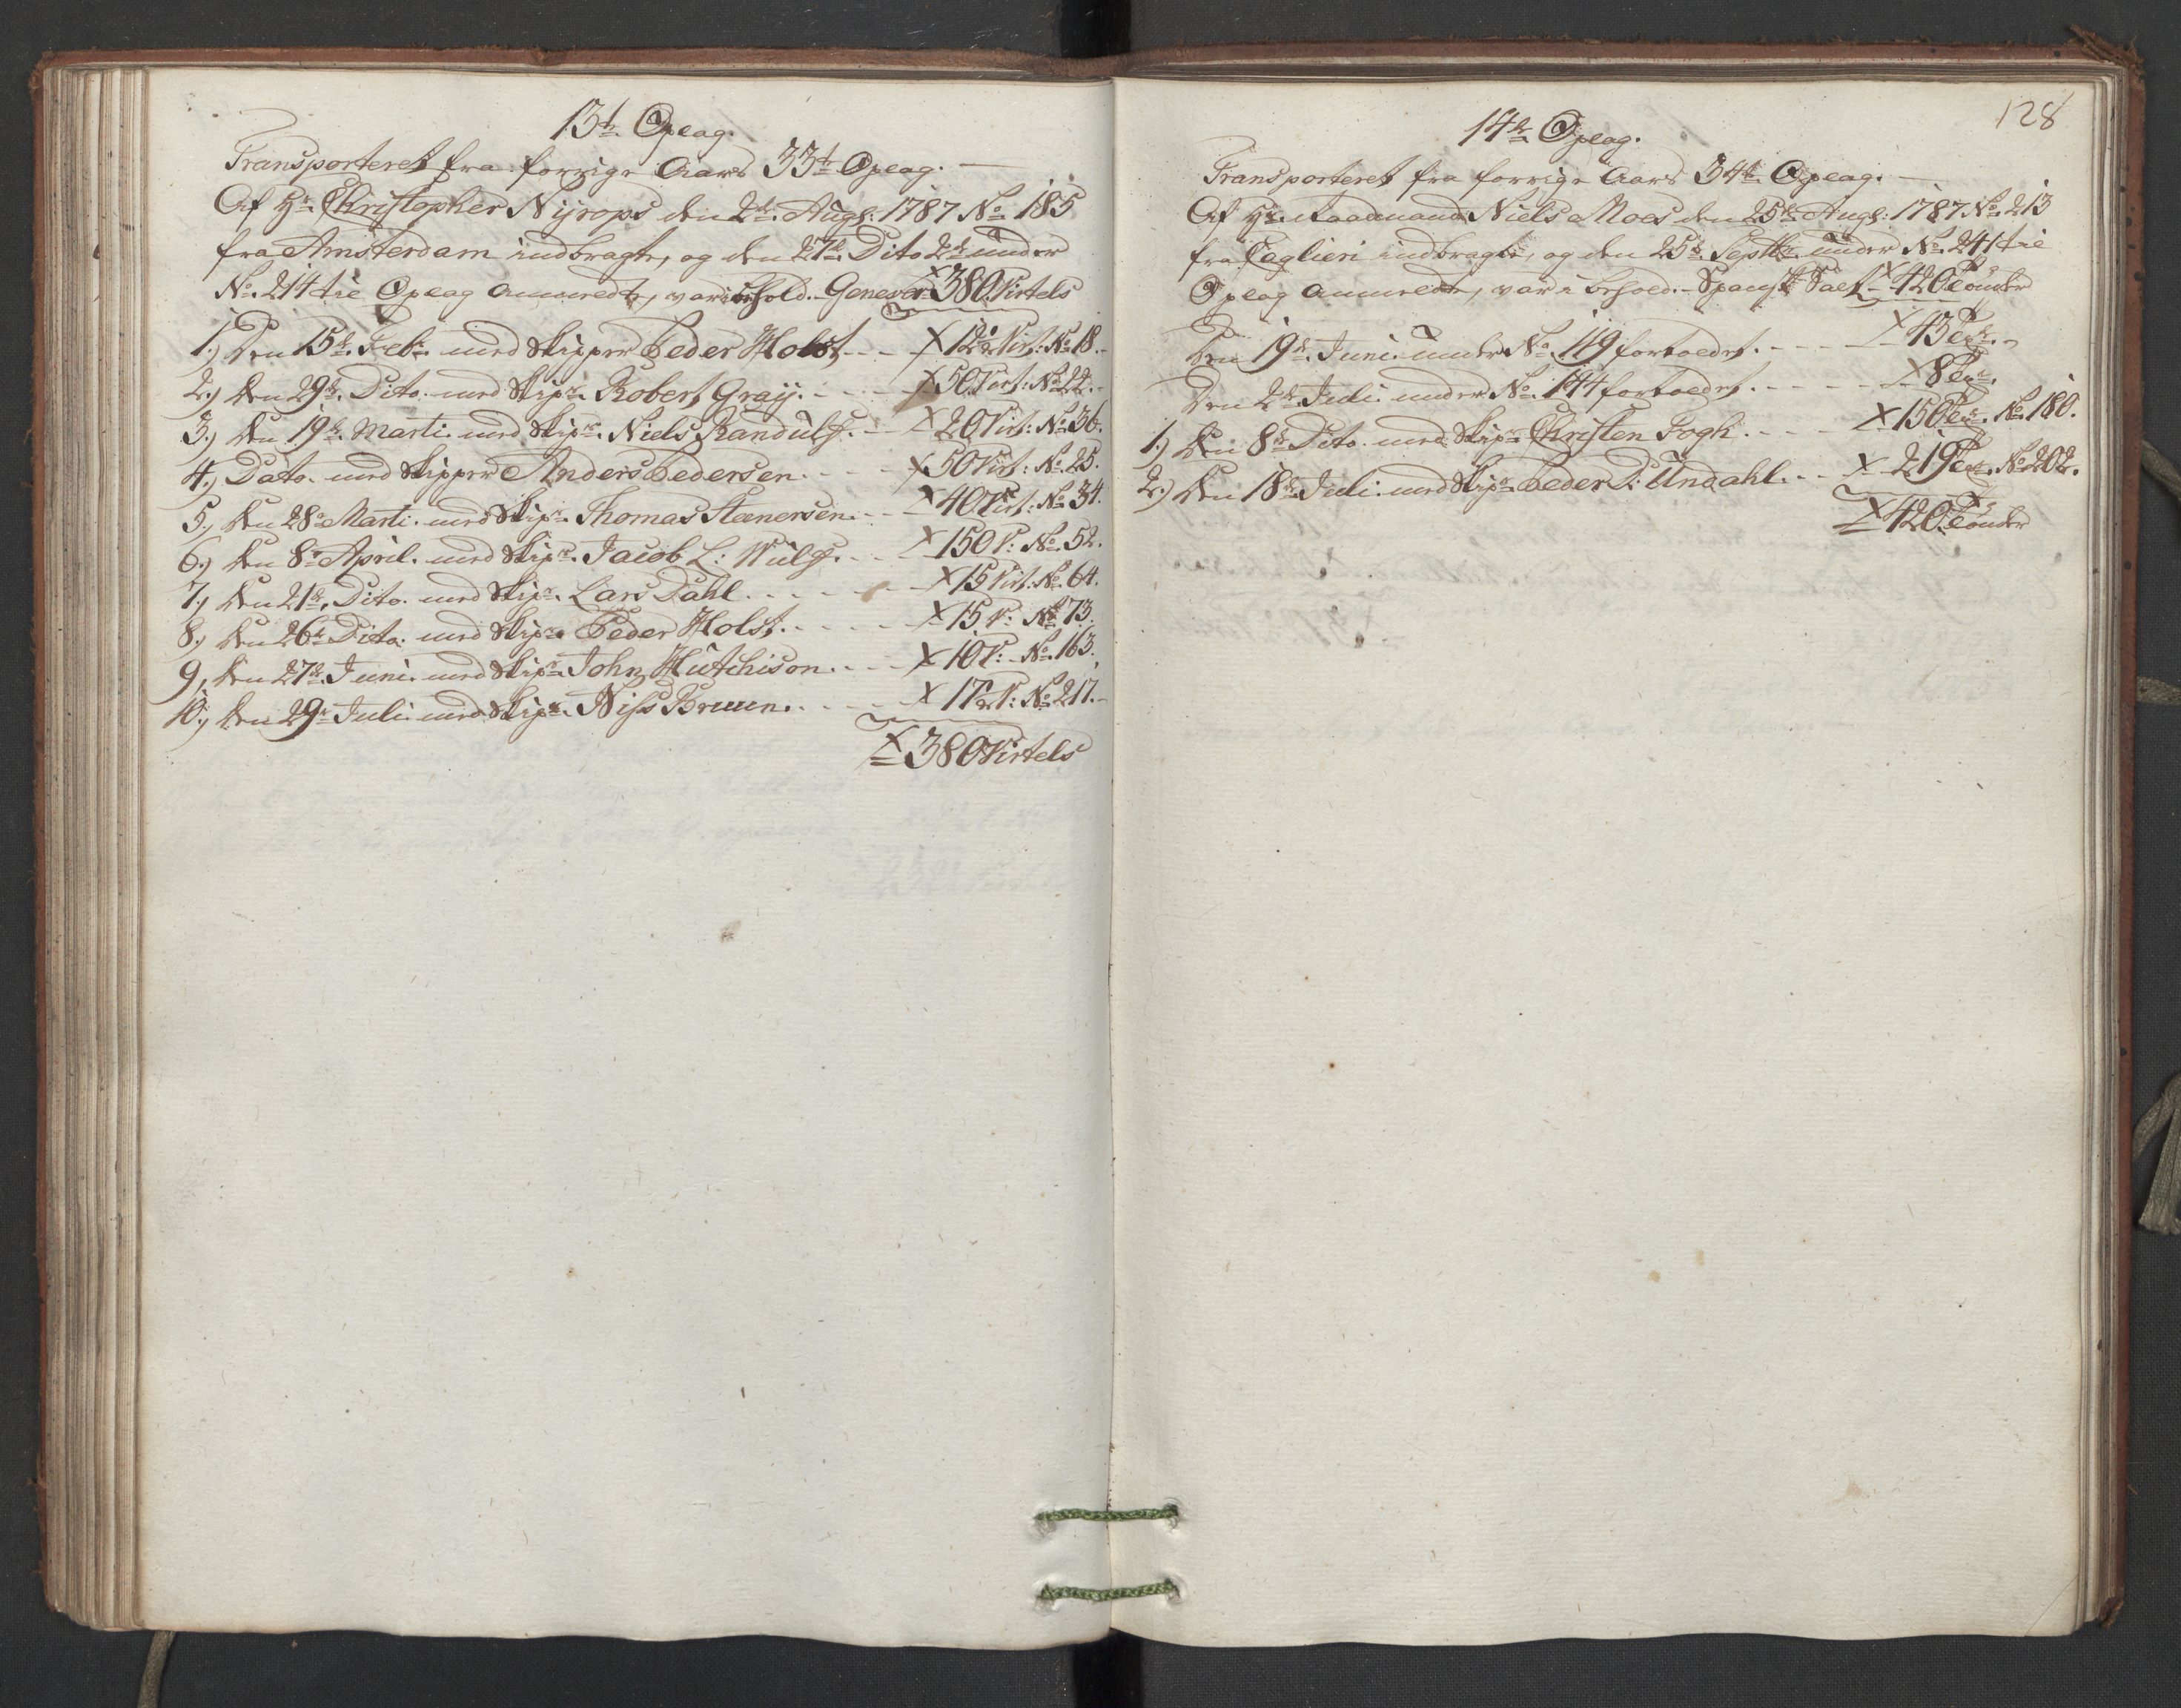 13de Oplag.
Transporteret fra forrige Aars 33te Oplag.
Af Hr. Christopher Nyrops den 2de Augs: 1787 No. 185
fra Amsterdam indbragte, og den 27de Dito under
No. 214 til Oplag anmeldte, var i behold. Genever X 380 Virtels
1.) Den 15de Feb: med Skipper Peder Holst - - X 12½ Virt: No. 18.
2.) Den 29de Dito. med Skipr. Robert Gray. - - X 50 Virt: No. 22.
3.) Den 19de Marti. med Skipr. Niels Randulf. - X 20 Virt: No. 36.
4.) Dato. med Skipper Anders Pedersen. - - - X 50 Virt: No. 25.
5.) Den 28de Marti. med Skipr. Thomas Steenersen. - X 40 Virt: No. 34.
6.) Den 8de April. med Skipr. Jacob L: Wulf. - - X 150 V: No. 52.
7.) Den 21de Dito. med Skipr. Lars Dahl. - - - - X 15 Virt. No. 64.
8.) Den 26de Dito. med Skipr. Peder Holst. - - - X 15 V: No. 73.
9.) Den 27de Juni. med Skipr. John Hutchison. - - X 10 V: No. 163.
10.) Den 29de Juli med Skipr. Niss Bruun. - - - X 17½ V: No. 217.
X 380 Virtels
128
14de Oplag.
Transporteret fra forrige Aars 34te Oplag.
Af Hr. Raadmand Niels Moes den 25de Augs: 1787 No. 213
fra Caglieri indbragte, og den 25de Septbr. under No. 241 til
Oplag anmeldte, var i behold. Spansk Salt - X 420 Tønder
Den 19de Juni. under No. 119 fortoldet. - - - - X 43 Tr.
Den 2de Juli under No. 144 fortoldet. - - - - X 8 Tr.
1.) Den 8de Dito. med Skipr. Christen Fogh. - - - X 150 Tr. No. 180.
2.) Den 18de Juli. med Skipr. Peder D: Undahl. - - X 219 Tr. No. 202.
X 420 Tønder